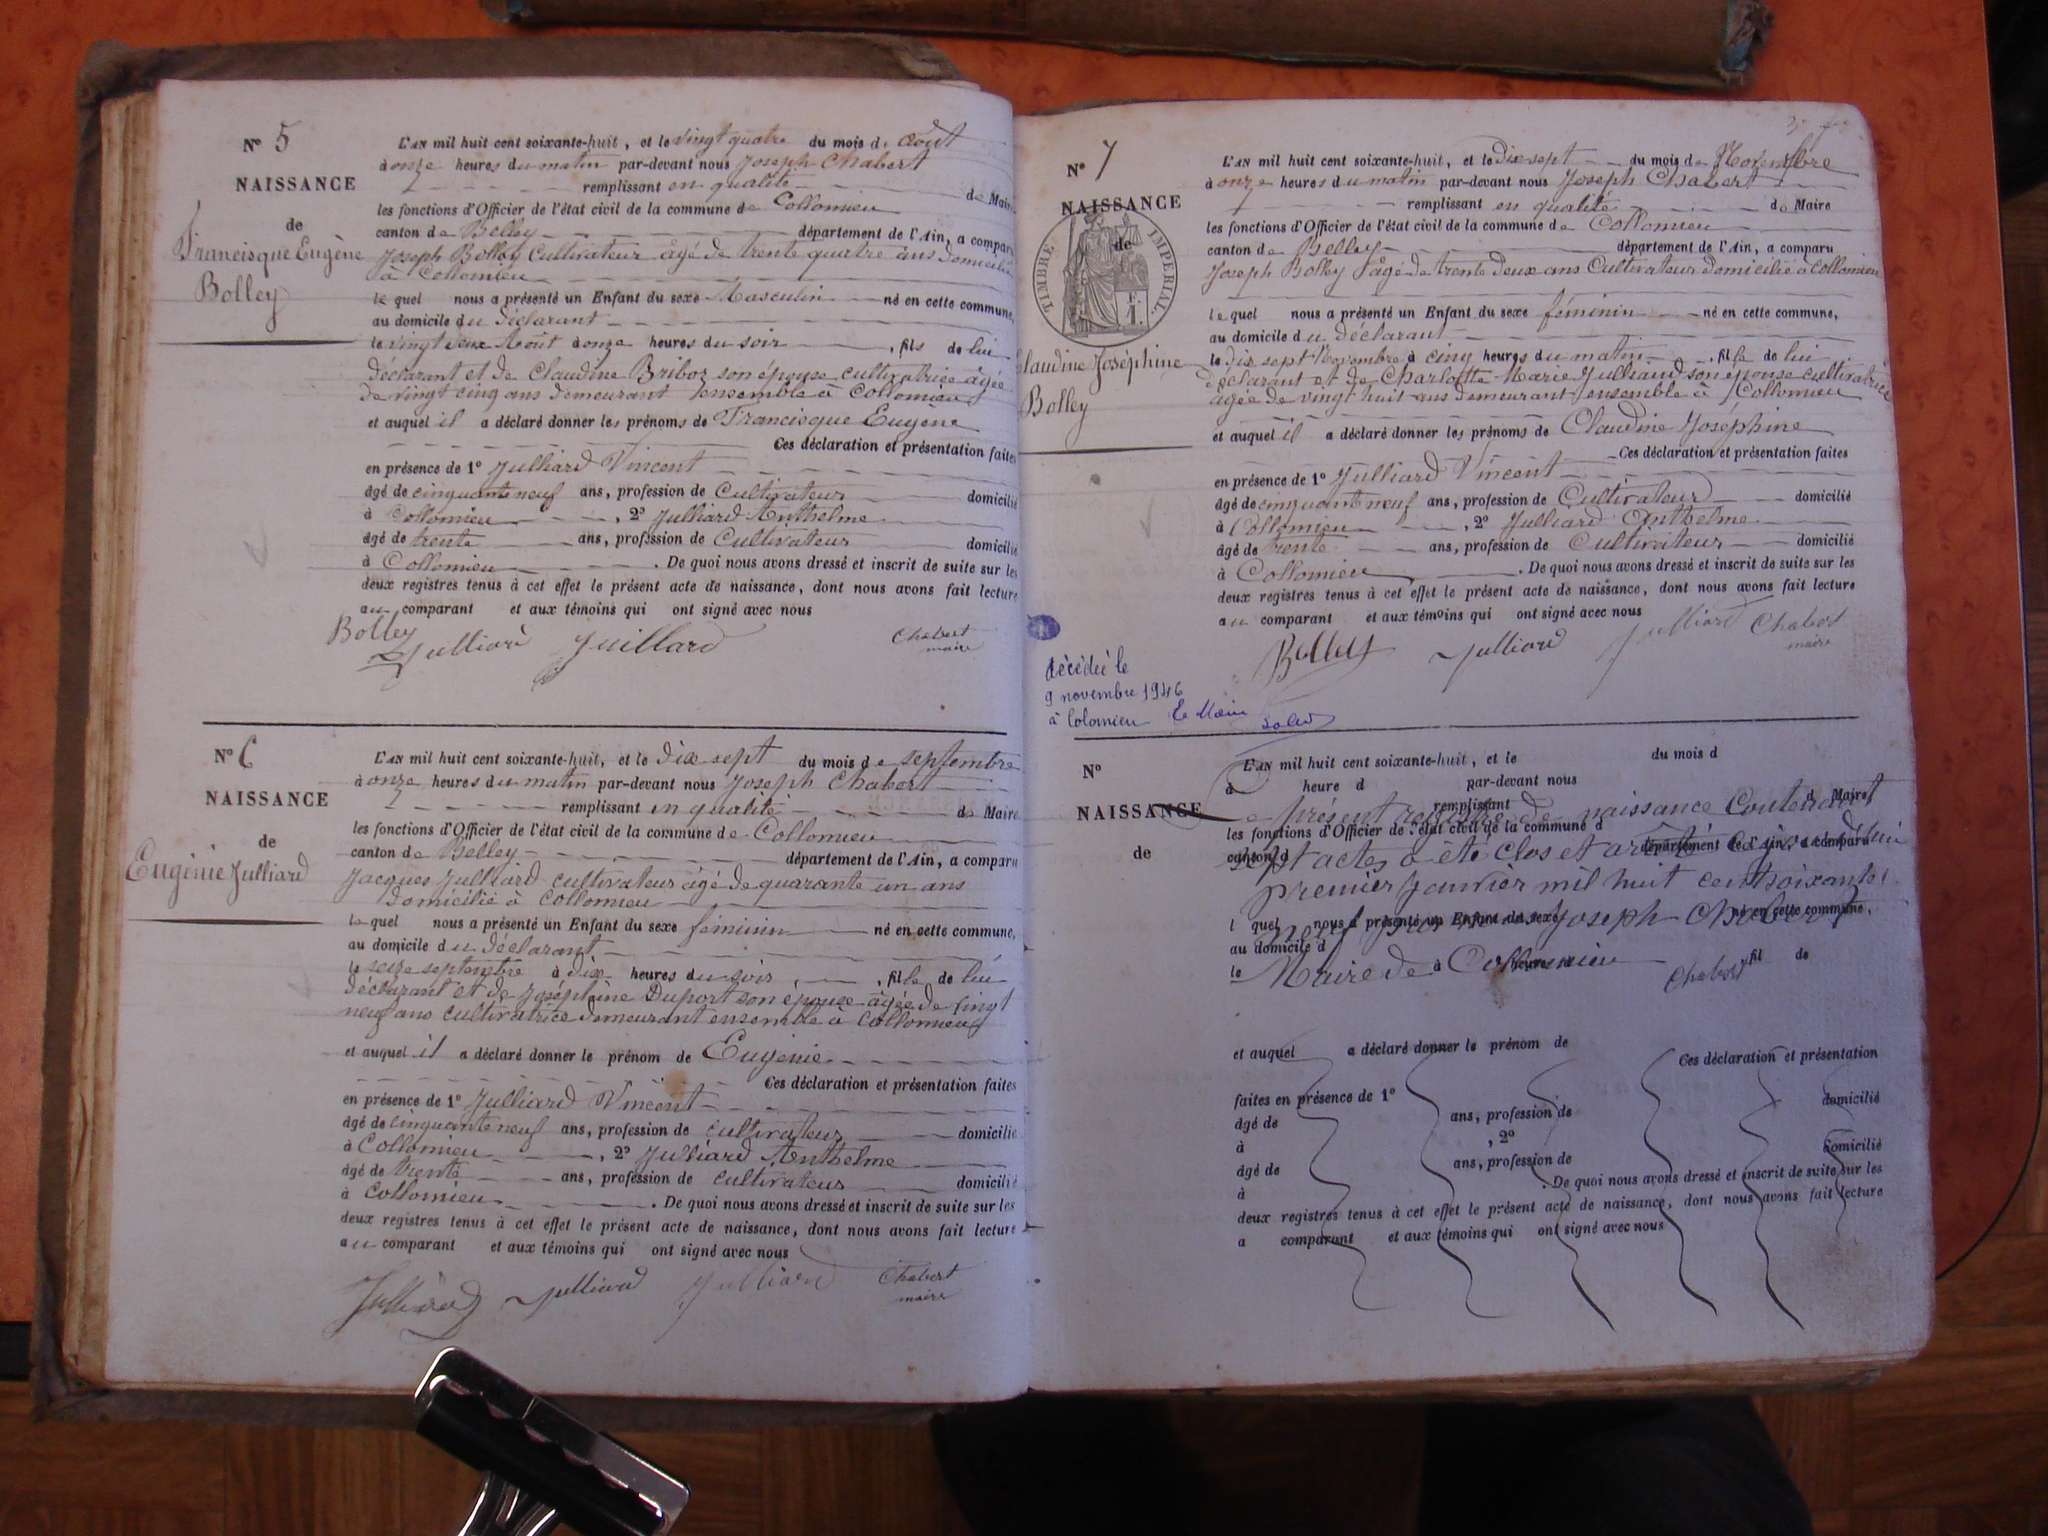 N° 5
NAISSANCE
de
Francisque Eugène
Bolley
L'AN mil huit cent soixante-huit, et le vingt quatre du mois d'août
à onze heures du matin par-devant nous Joseph Chabert
remplissant en qualité de Maire
les fonctions d'Officier de l'état civil de la commune de Collomieu
canton de Belley département de l'Ain, a comparu
Joseph Bolley Cultivateur âgé de trente quatre ans domicilié
à Collomieu
le quel nous a présenté un Enfant du sexe Masculin né en cette commune,
au domicile du déclarant
le vingt deux Août à onze heures du soir, fils de lui
déclarant et de Claudine Briboz son épouse cultivatrice âgée
de vingt cinq ans demeurant ensemble à Collomieu
et auquel il a déclaré donner les prénoms de Francisque Eugène
Ces déclaration et présentation faites
en présence de 1° Julliard Vincent
âgé de cinquante neuf ans, profession de Cultivateur domicilié
à Collomieu, 2° Julliard Anthelme
âgé de trente ans, profession de Cultivateur domicilié
à Collomieu. De quoi nous avons dressé et inscrit de suite sur les
deux registres tenus à cet effet le présent acte de naissance, dont nous avons fait lecture
au comparant et aux témoins qui ont signé avec nous
Bolley
Julliard Juillard Chabert
maire
N° 6
NAISSANCE
de
Eugénie Julliard
L'AN mil huit cent soixante-huit, et le dix sept du mois de septembre
à onze heures du matin par-devant nous Joseph Chabert
remplissant en qualité de Maire
les fonctions d'Officier de l'état civil de la commune de Collomieu
canton de Belley département de l'Ain, a comparu
Jacques Julliard cultivateur âgé de quarante un ans
domicilié à Collomieu
le quel nous a présenté un Enfant du sexe féminin né en cette commune,
au domicile du déclarant
le seize septembre à dix heures du soir, fille de lui
déclarant et de Joséphine Duport son épouse âgée de vingt
neuf ans cultivatrice demeurant ensemble à Collomieu
et auquel il a déclaré donner le prénom de Eugénie
Ces déclaration et présentation faites
en présence de 1° Julliard Vincent
âgé de cinquante neuf ans, profession de cultivateur domicilié
à Collomieu, 2° Julliard Anthelme
âgé de trente ans, profession de cultivateur domicilié
à Collomieu. De quoi nous avons dressé et inscrit de suite sur les
deux registres tenus à cet effet le présent acte de naissance, dont nous avons fait lecture
au comparant et aux témoins qui ont signé avec nous
Julliard Julliard Julliard Chabert
maire
N° 7
NAISSANCE
de
TIMBRE IMPERIAL
Claudine Joséphine
Bolley
L'AN mil huit cent soixante-huit, et le Dix sept du mois de Novembre
à onze heures du matin par-devant nous Joseph Chabert
remplissant en qualité de Maire
les fonctions d'Officier de l'état civil de la commune de Collomieu
canton de Belley département de l'Ain, a comparu
Joseph Bolley âgé de trente deux ans Cultivateur domicilié à Collomieu
le quel nous a présenté un Enfant du sexe féminin né en cette commune,
au domicile du déclarant
le dix sept Novembre à cinq heures du matin, fille de lui
déclarant et de Charlotte Marie Julliard son épouse cultivatrice
âgée de vingt huit ans demeurant ensemble à Collomieu
et auquel il a déclaré donner les prénoms de Claudine Joséphine
Ces déclaration et présentation faites
en présence de 1° Julliard Vincent
âgé de cinquante neuf ans, profession de Cultivateur domicilié
à Collomieu, 2° Julliard Anthelme
âgé de trente ans, profession de Cultivateur domicilié
à Collomieu. De quoi nous avons dressé et inscrit de suite sur les
deux registres tenus à cet effet le présent acte de naissance, dont nous avons fait lecture
au comparant et aux témoins qui ont signé avec nous
Bolley Julliard Julliard Chabert
maire
décédée le
9 novembre 1946
à Colomieu Le Maire
N°
NAISSANCE
de
L'AN mil huit cent soixante-huit, et le du mois d
à heure d par-devant nous
remplissant d Maire
Le présent registre de naissance Contenant
les fonctions d'Officier de l'état civil de la commune d
canton d département de l'Ain, a comparu
sept actes a été clos et arrêté Cejourd'hui
premier Janvier mil huit cent soixante
l quel nous a présenté un Enfant du sexe né en cette commune,
neuf par nous Joseph Chabert
au domicile d
le à heure d fil de
Maire de Collomieu Chabert
et auquel a déclaré donner le prénom de
Ces déclaration et présentation
faites en présence de 1°
âgé de ans, profession de domicilié
à , 2°
âgé de ans, profession de domicilié
à . De quoi nous avons dressé et inscrit de suite sur les
deux registres tenus à cet effet le présent acte de naissance, dont nous avons fait lecture
a comparant et aux témoins qui ont signé avec nous